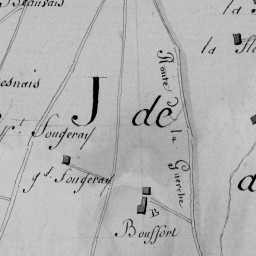 Beauvais
la
la
esnais
J de
Route de la Guerche
Fougeray
g.d Fougeray
B
Bouffort